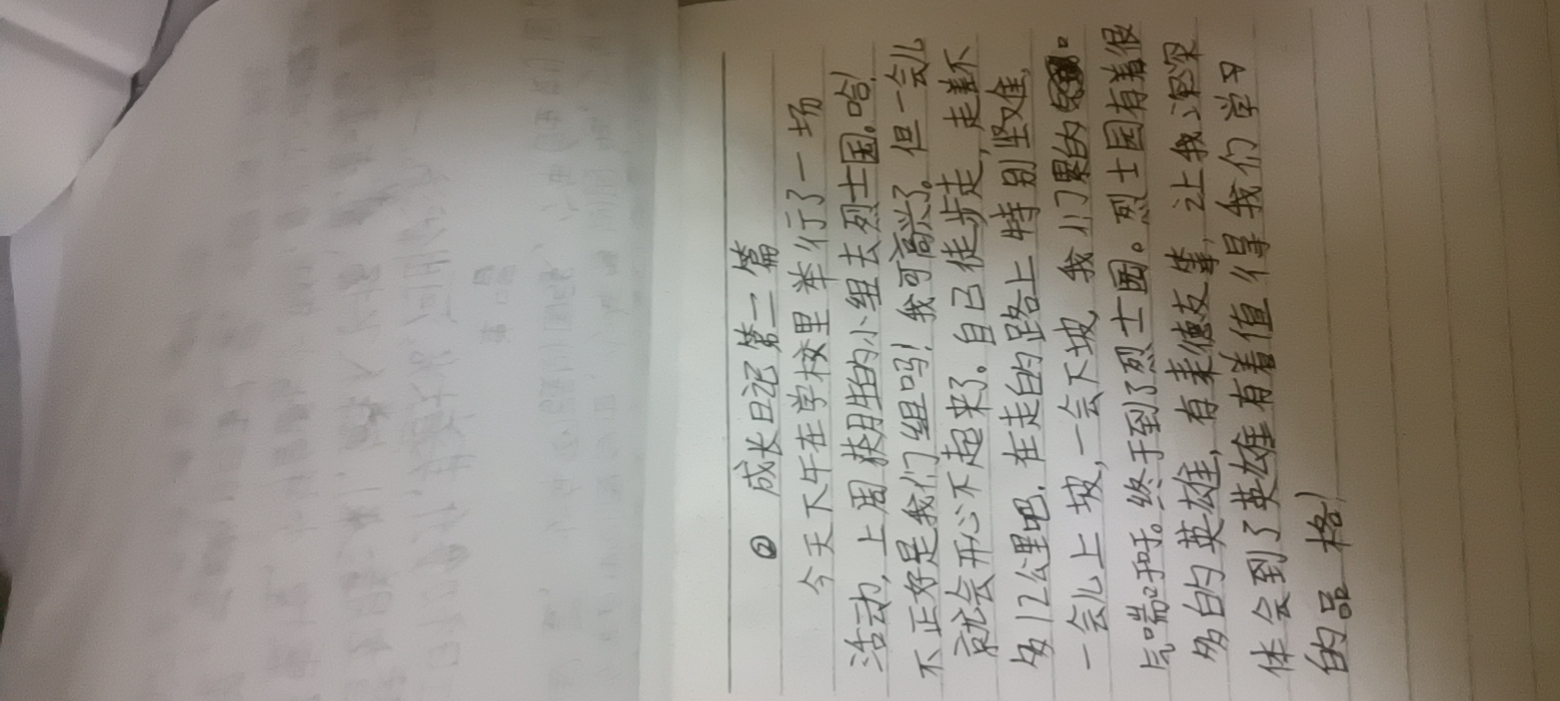 ② 成长日记第二篇
今天下午在学校里举行了一场
活动,上周获胜的小组去烈士园。哈!
不正好是我们组吗!我可高兴了。但一会儿
就会开心不起来了。自己徒步走,走差不
多12公里吧.在走的路上特别坚难,
一会儿上坡,一会下坡,我们累的。
气喘呼呼。终于到了烈士园。烈士园有着很
多的英雄,有来德友等,让我深深
体会到了英雄有着值得我们学习
的品格!